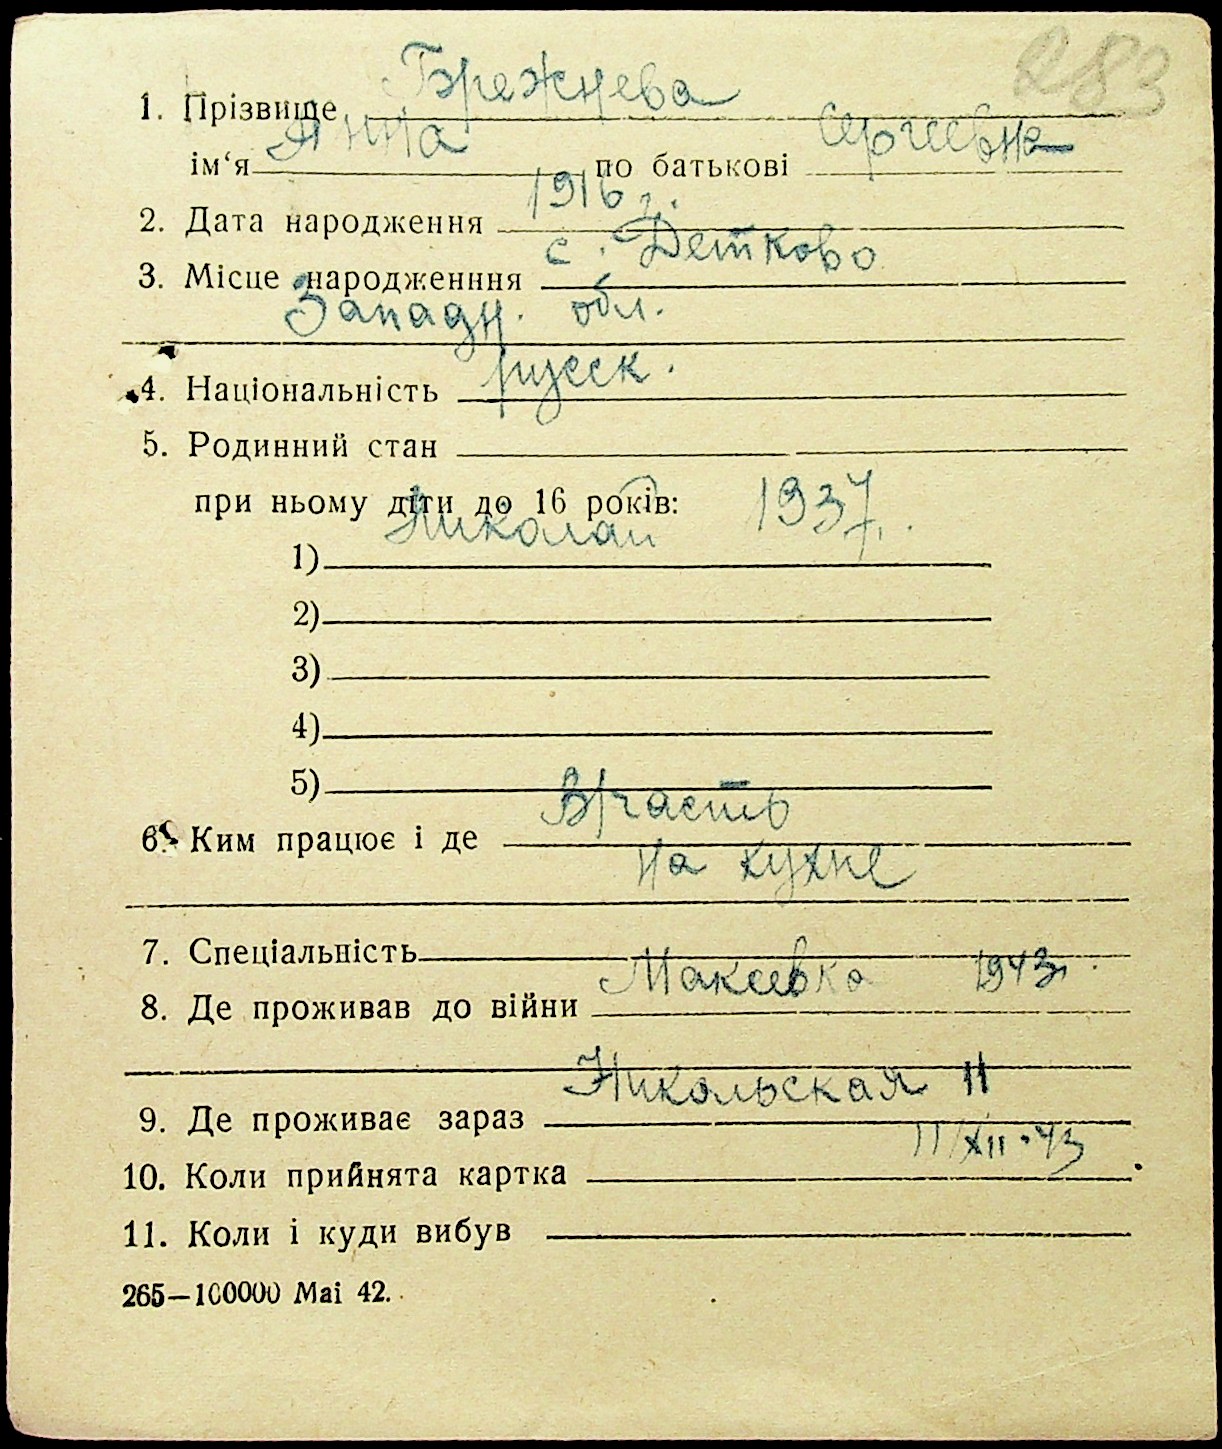 283
1. Прізвище Брежнева
ім‘я Анна по батькові Сергеевна
2. Дата народження 1916 г.
3. Місце народженння с. Детково
Западн. обл.
4. Національність русск.
5. Родинний стан
при ньому діти до 16 років:
1) Николай 1937.
2)
3)
4)
5)
6. Ким працює і де В/часть
на кухне
7. Спеціальність
8. Де проживав до війни Макеевка 1943.
9. Де проживає зараз Никольская 11
10. Коли прийнята картка 11/XII·43
11. Коли і куди вибув
265—100000 Mai 42.